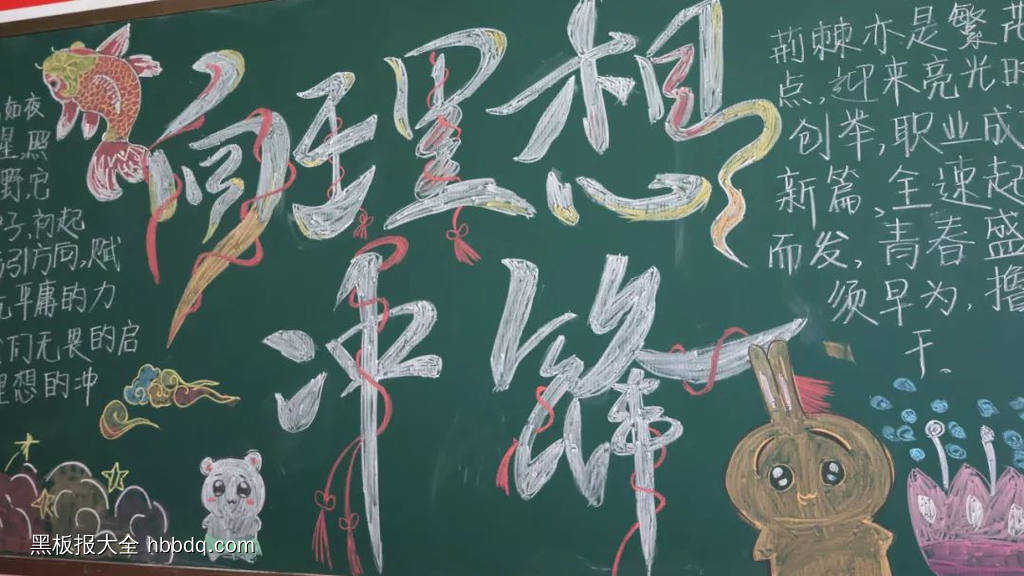 向理想
冲锋
如夜
星熙
野,它
子,初起
引方向,赋
平庸的力
们无畏的启
理想的冲
荆棘亦是繁花
点,迎来亮光时
创举,职业成
新篇、全速起
而发,青春盛
须早为,撸
干、
黑板报大全 hbbdq.com